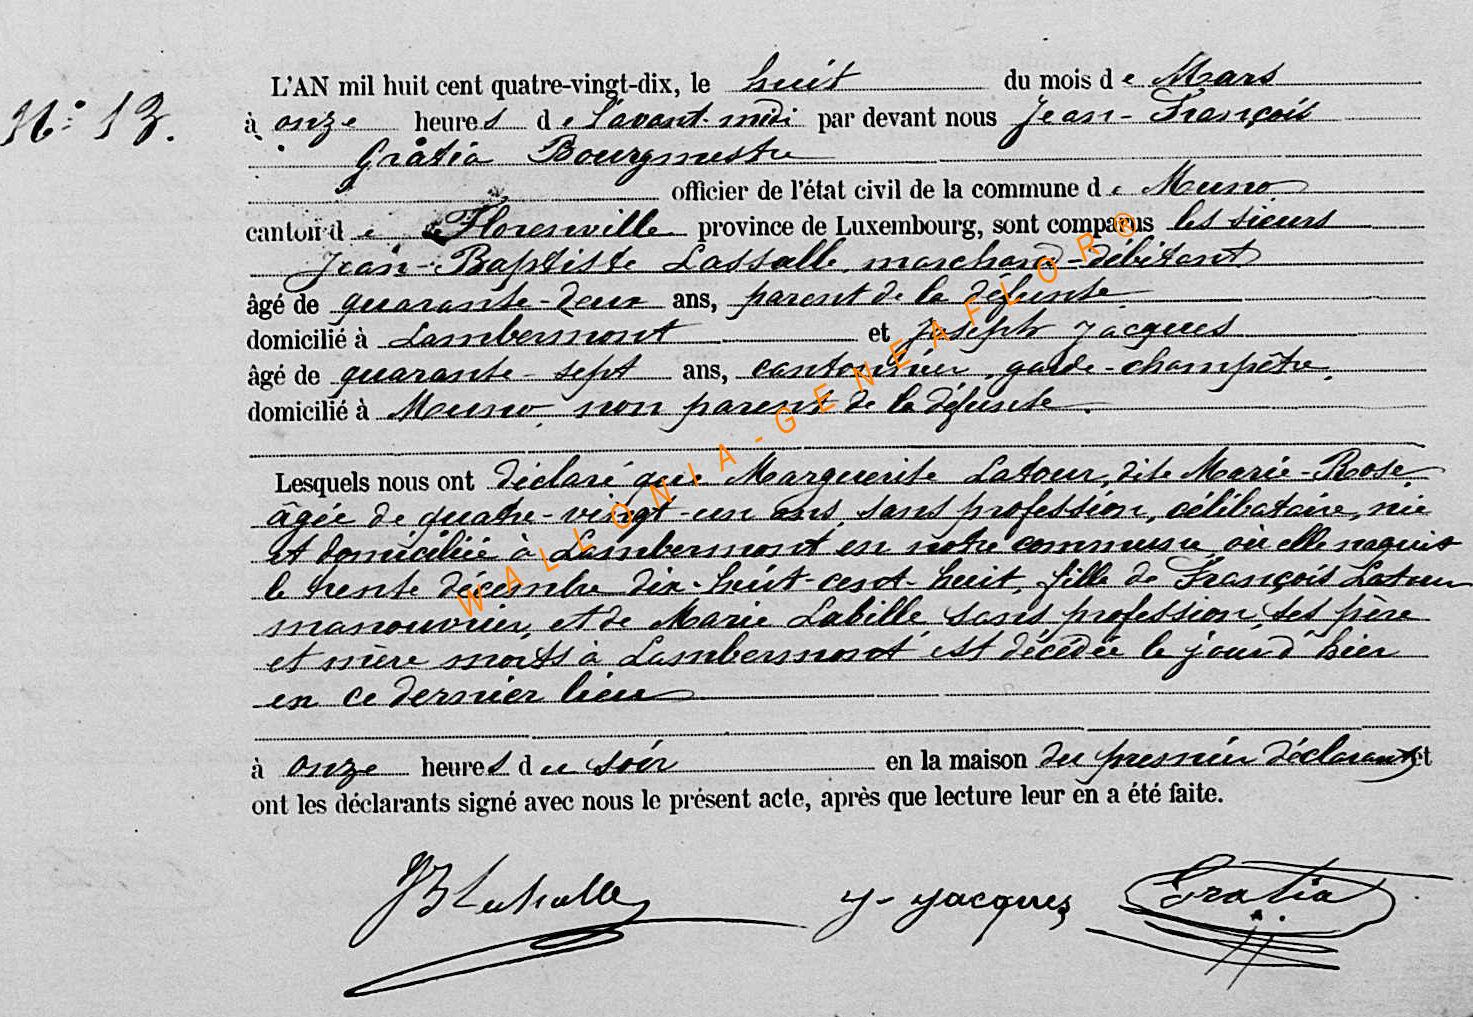 N.° 13.
L'AN mil huit cent quatre-vingt-dix, le huit du mois de Mars
à onze heures de l'avant-midi par devant nous Jean-François
Gratia Bourgmestre
officier de l'état civil de la commune de Muno
canton de Florenville province de Luxembourg, sont comparus les sieurs
Jean-Baptiste Lassalle, marchand-débitant
âgé de quarante-deux ans, parent de la défunte
domicilié à Lambermont et Joseph Jacques
âgé de quarante-sept ans, cantonnier, garde-champêtre,
domicilié à Muno, non parent de la défunte.
Lesquels nous ont déclaré que Marguerite Latour, dite Marie-Rose,
âgée de quatre-vingt-un ans, sans profession, célibataire, née
et domiciliée à Lambermont en notre commune, où elle naquit
le trente décembre dix-huit-cent-huit, fille de François Latour
manouvrier, et de Marie Labille sans profession, ses père
et mère morts à Lambermont est décédée le jour d'hier
en ce dernier lieu
à onze heures du soir en la maison du premier déclarant et
ont les déclarants signé avec nous le présent acte, après que lecture leur en a été faite.
JB Lassalle J. Jacques Gratia
WALLONIA-GENEAFLOR®